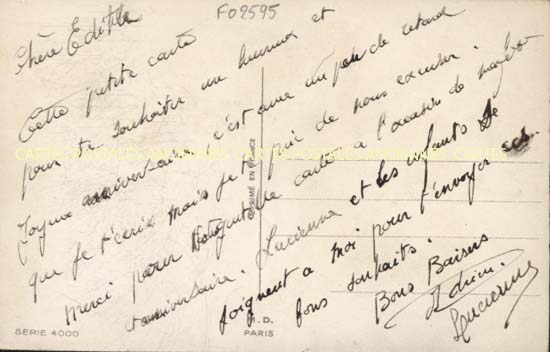 FO9595
Chère Edith
Cette petite carte
pour te souhaiter un heureux et
Joyeux anniversaire c'est avec un peu de retard
que je t'écris mais je te prie de nous excuser.
Merci pour ta carte à l'occasion de
anniversaire. Lucienne et les enfants se
joignent a moi pour t'envoyer ses
bons souhaits.
Bons Baisers
Lucienne
IMPRIMÉ EN FRANCE
SÉRIE 4000
M.D.
PARIS